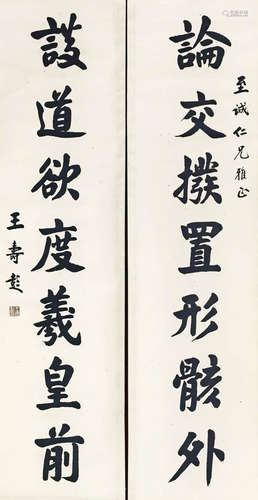 至诚仁兄雅正
論交撥置形骸外
談道欲度羲皇前
王壽彭